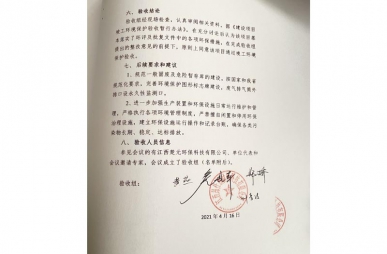 六、验收结论
验收组经现场检查，认真审阅相关资料，按《建设项目
竣工环境保护验收暂行办法》，经充分讨论后认为该项目基
本落实了环评及批复文件中的各项环保措施，在完成验收组
提出的整改意见的前提下，原则上同意该项目通过竣工环境
保护验收。
七、后续要求和建议
1、规范一般固废及危险暂存库的建设，按国家和我省
规范化要求，完善环境保护图形标志牌建设，废气排气筒外
排口设永久性监测口。
2、进一步加强生产装置和环保设施日常运行维护和管
理，严格执行各项环境管理制度，严禁擅自闲置和停用环保
治理设施，建立环保设施运行操作和记录台账，确保各类污
染物长期、稳定、达标排放。
八、验收人员信息
参见会议的有江西楚元环保科技有限公司、单位代表和
会议邀请专家，会议成立了验收组（名单附后）。
验收组：
2021年4月16日